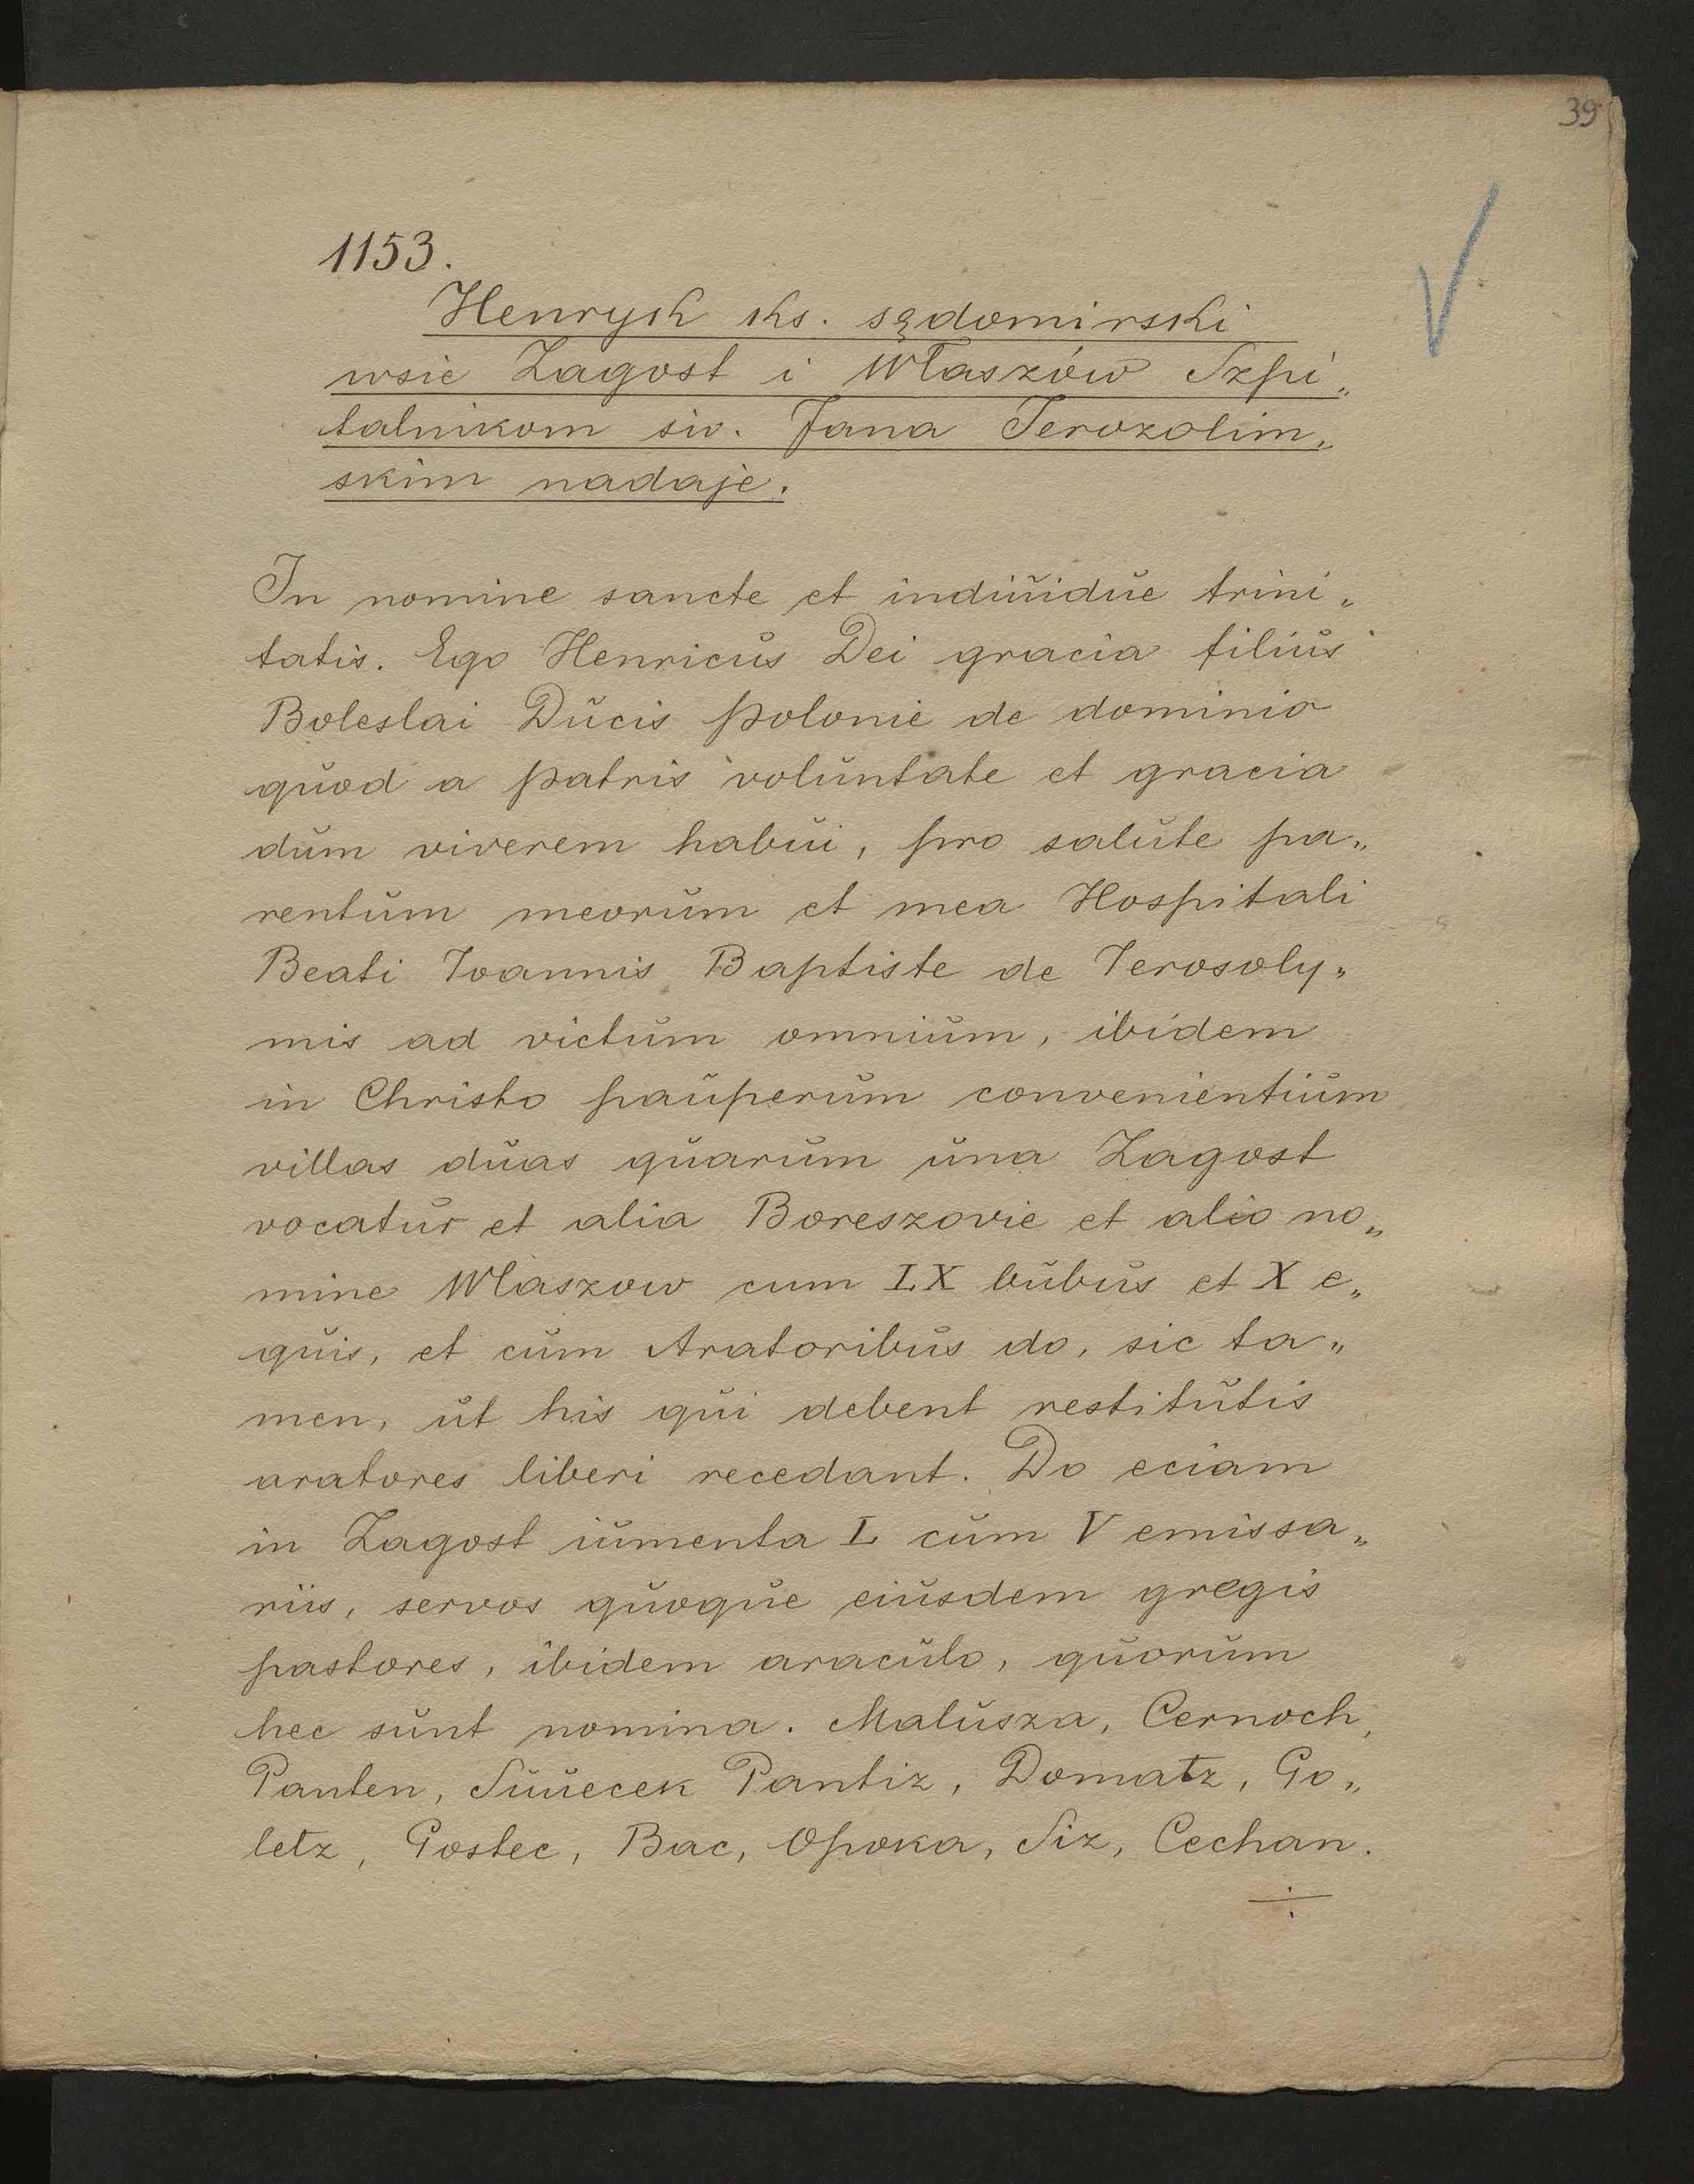 39
1153.
Henryk ks. sędomirski
wsie Zagost i Właszów Szpi„
talnikom św. Jana Jerozolim„
skim nadaje.
In nomine sancte et indiuidue trini„
tatis. Ego Henricus Dei gracia filius
Boleslai Ducis Polonie de dominio
quod a patris voluntate et gracia
dum viverem habui, pro salute pa„
rentum meorum et mea Hospitali
Beati Ioannis Baptiste de Ierosoly„
mis ad victum omnium, ibidem
in Christo pauperum convenientium
villas duas quarum una Zagost
vocatur et alia Boreszovie et alio no„
mine Wlaszow cum LX bubus et X e„
quis, et cum Aratoribus do, sic ta„
men, ut his qui debent restitutis
aratores liberi recedant. Do eciam
in Zagost iumenta L cum V emissa„
riis, servos quoque eiusdem gregis
pastores, ibidem araculo, quorum
hec sunt nomina. Malusza, Cernoch,
Panten, Suuecek Pantiz, Domatz, Go„
letz, Gostec, Bac, Opoka, Siz, Cechan.